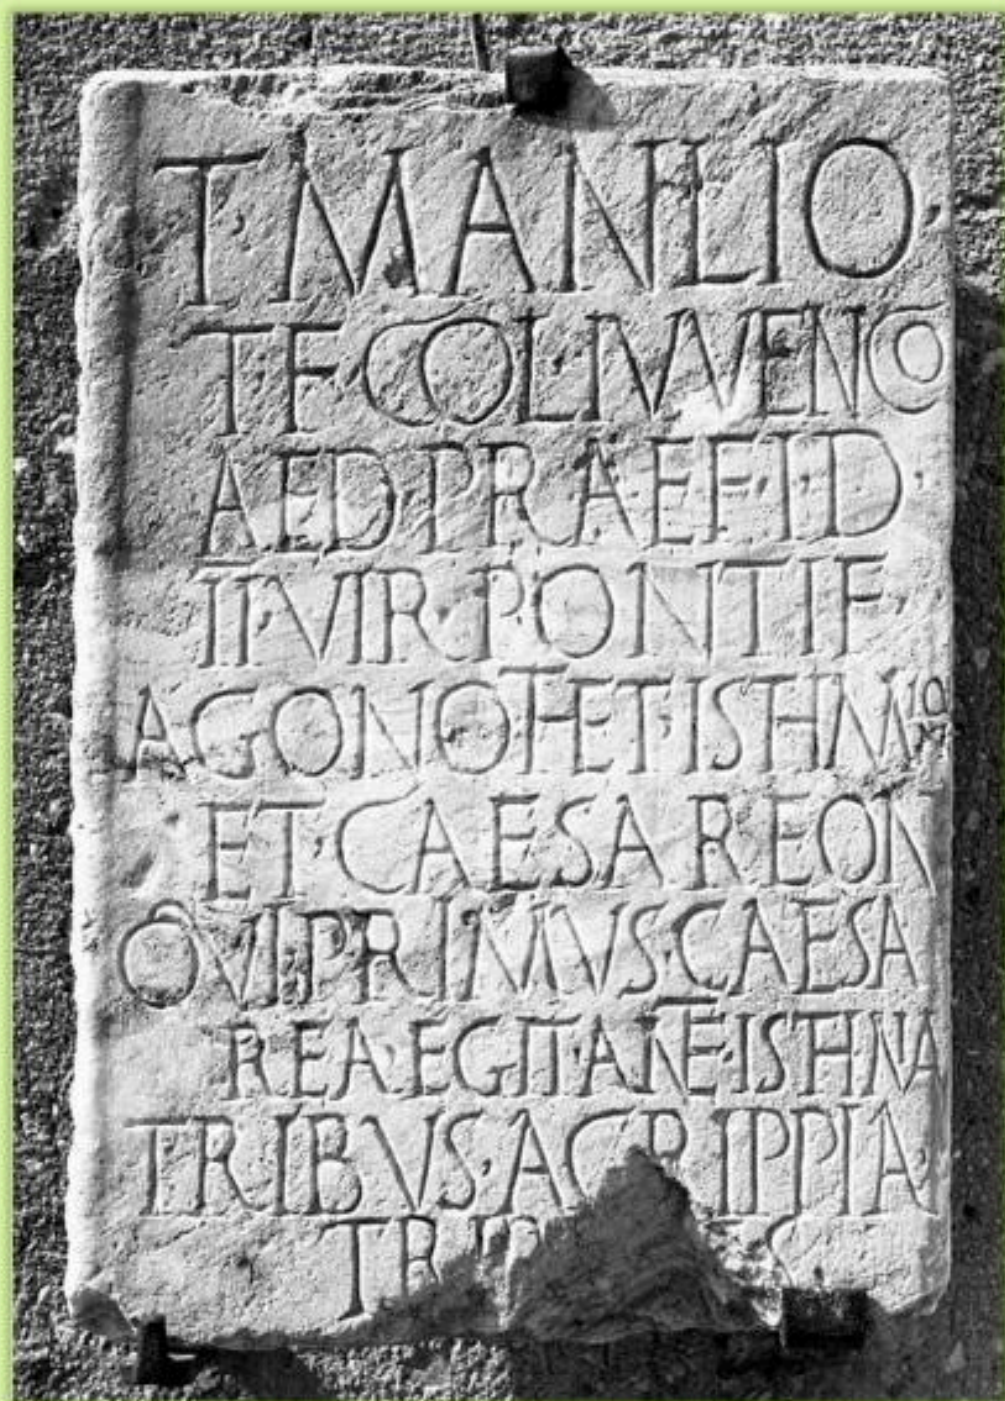 T·MANLIO·
T·F·COL·IVVENCO
AED·PRAEF·I·D·
II·VIR·PONTIF·
AGONOTHET·ISTHMIO
ET·CAESAREON
QVI·PRIMVS·CAESA
REA·EGIT·ANTE·ISTHMIA
TRIBVS·AGRIPPIA·